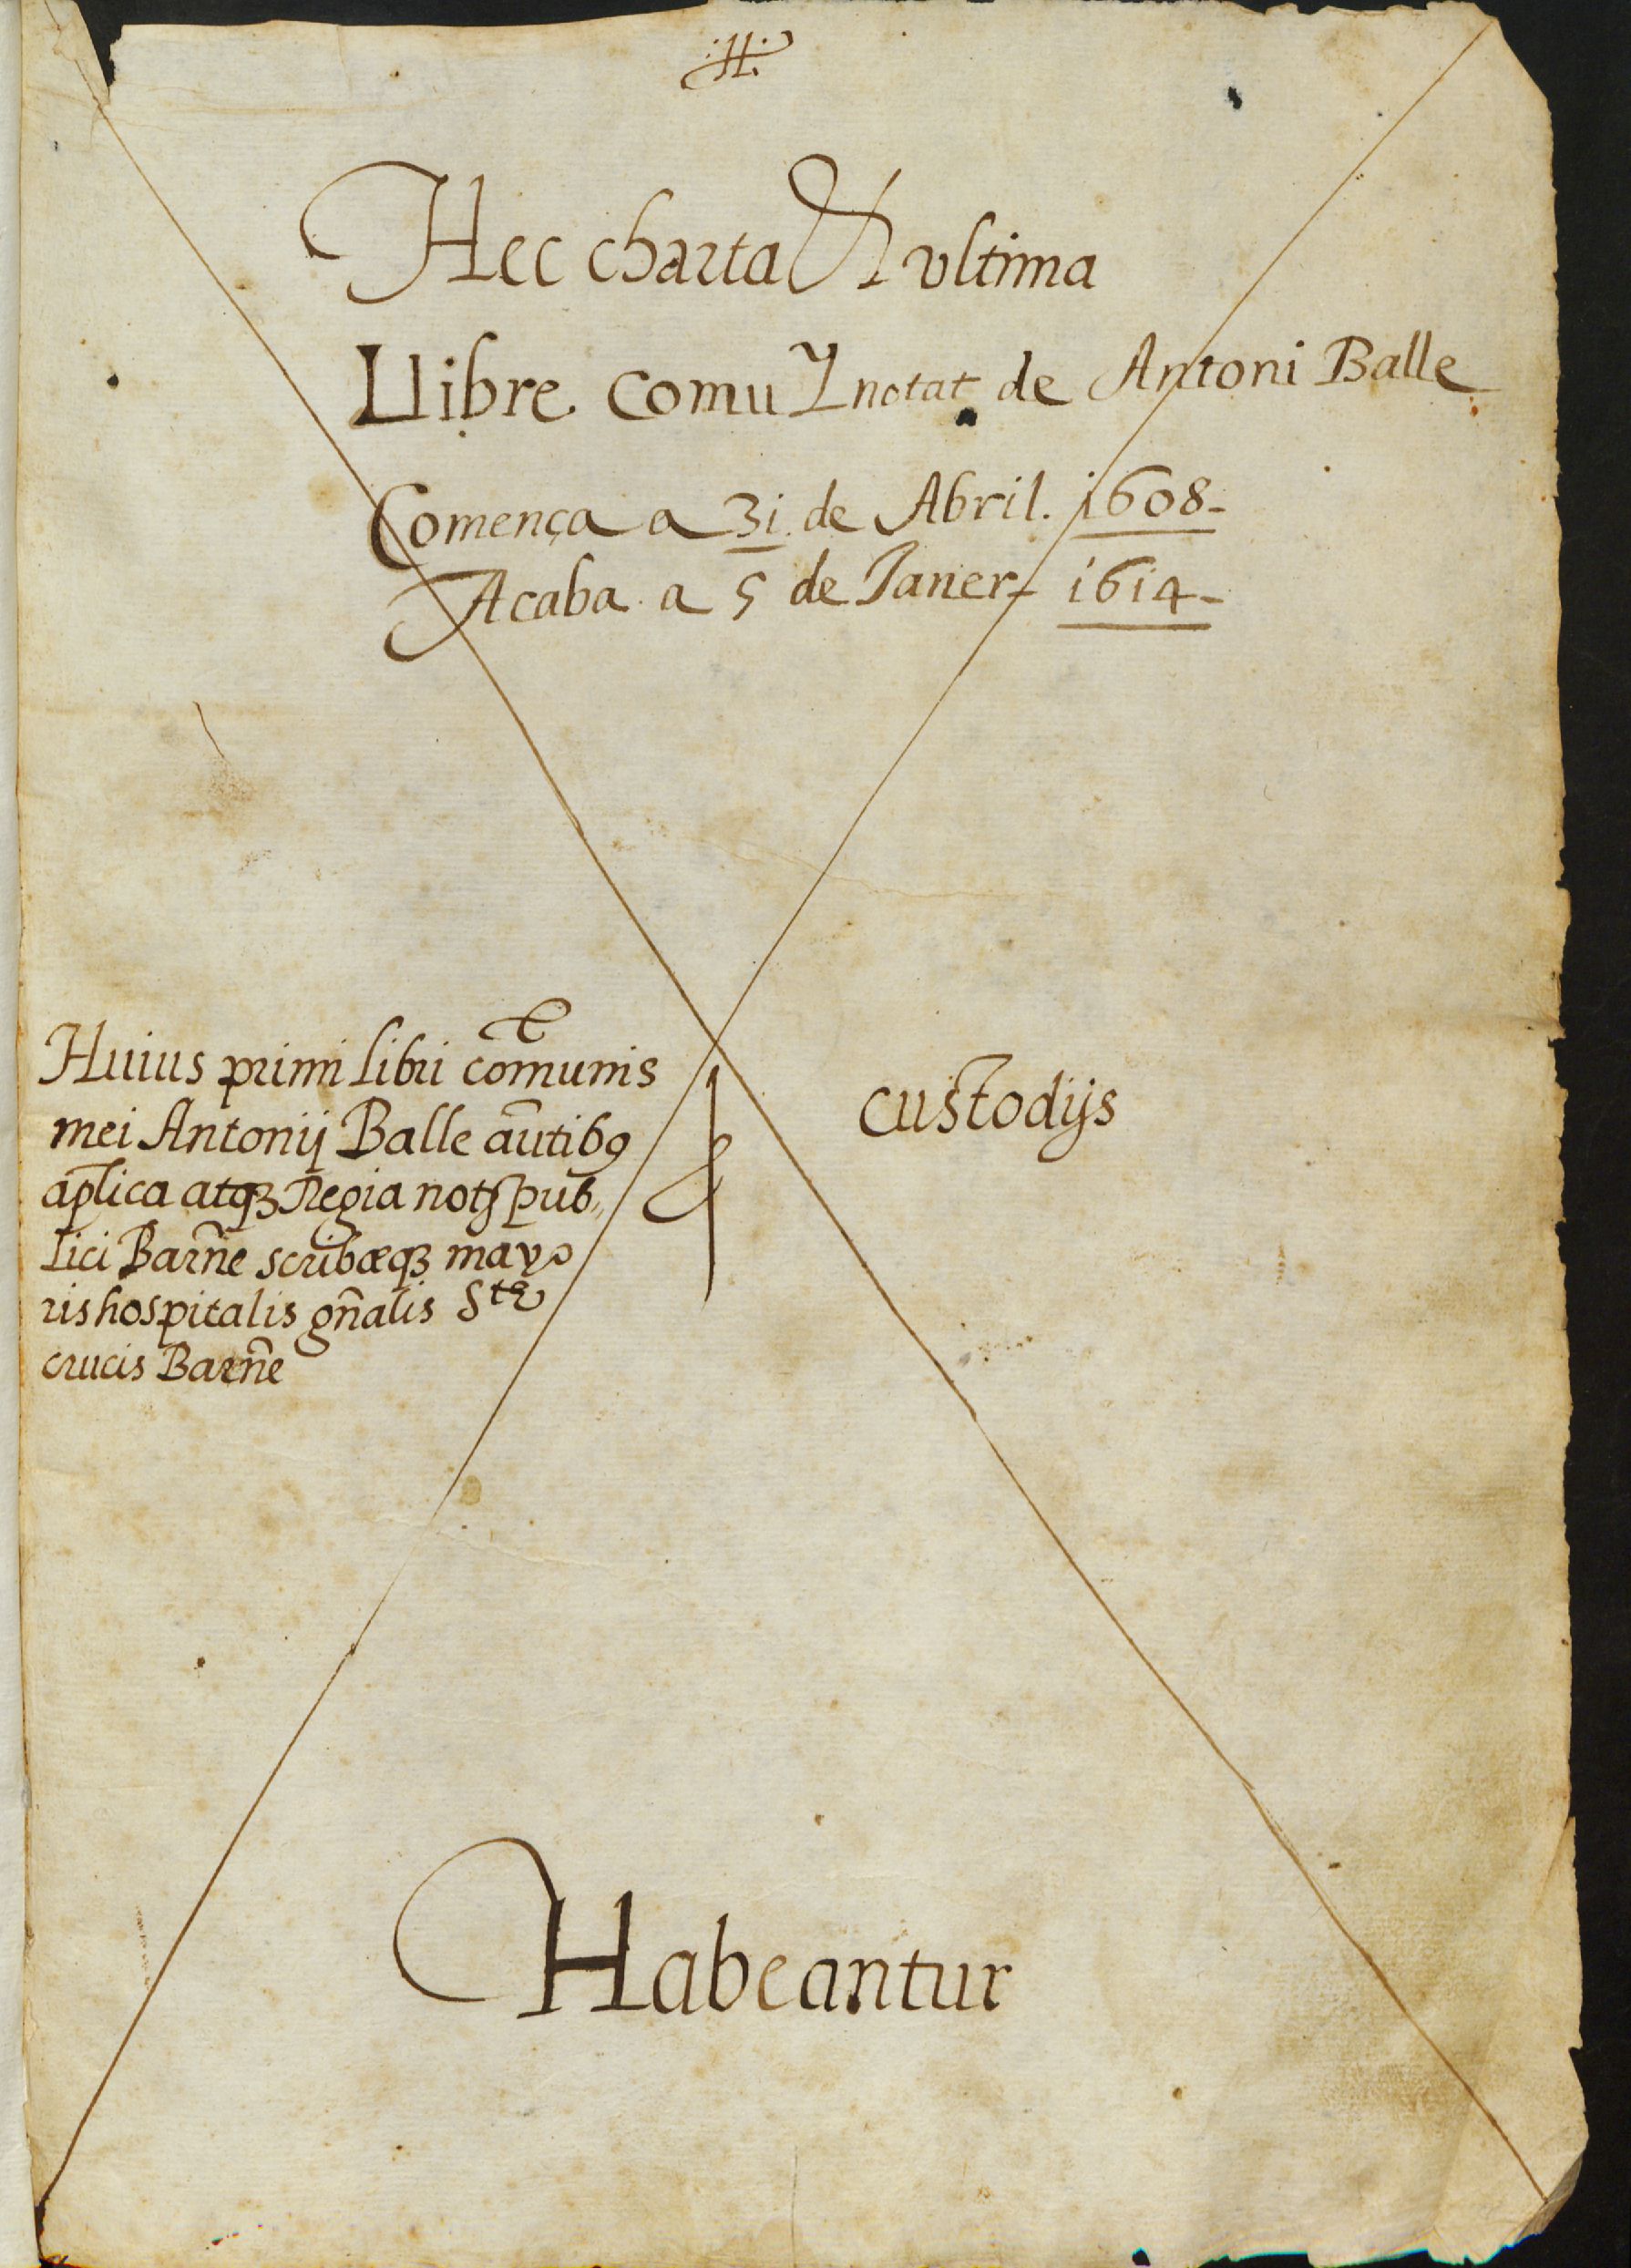 Hec charta & vltima
Llibre comu Ynotat de Antoni Balle
Comença a 31 de Abril. 1608-
Acaba a 5 de Janer- 1614-
Huius primi libri com̃unis
mei Antonij Balle aũtibꝯ
ap̃lica atqꝫ Regia notꝭ pub„
lici Barñe scribæqꝫ mayo
ris hospitalis gñalis Ste
crucis Barñe
custodijs
Habeantur